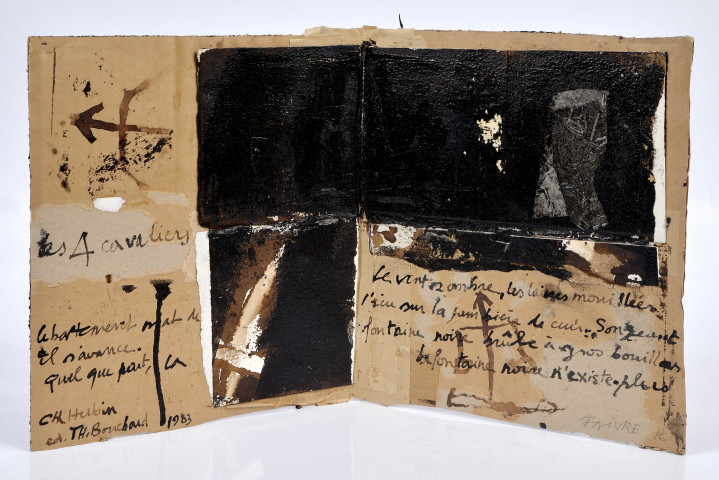 les 4 cavaliers
Le battement mat de
Et s'avance.
Quel que part, la
CH. Hubin
ed. TH. Bouchard 1983
Le vent ombre, les laines mouillées
l'écu sur la de cuir. Songeant
fontaine noire brûle à gros bouillons
la fontaine noire n'existe plus
FAIVRE